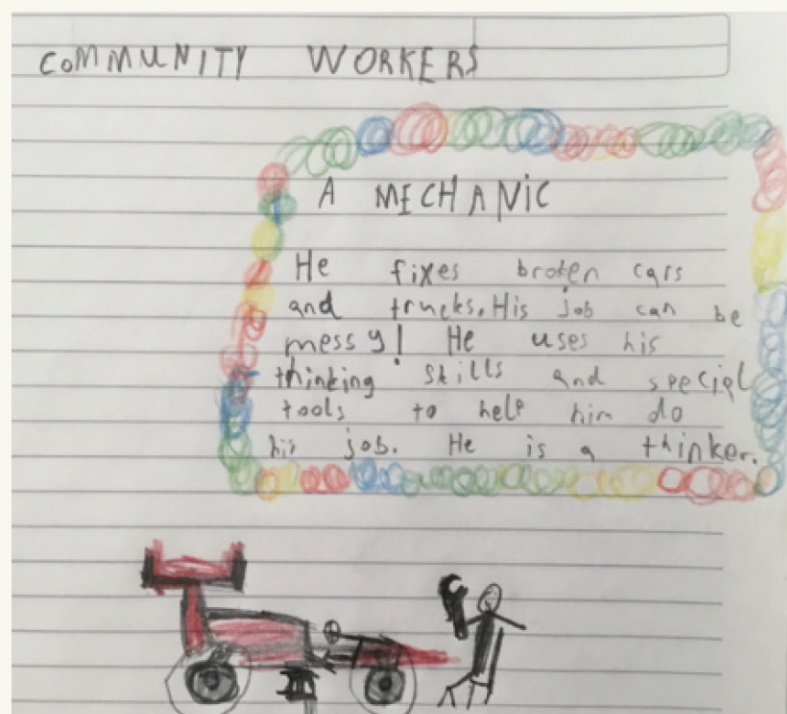 COMMUNITY WORKERS
A MECHANIC
He fixes broken cars
and trucks. His job can be
messy! He uses his
thinking skills and special
tools to help him do
his job. He is a thinker.